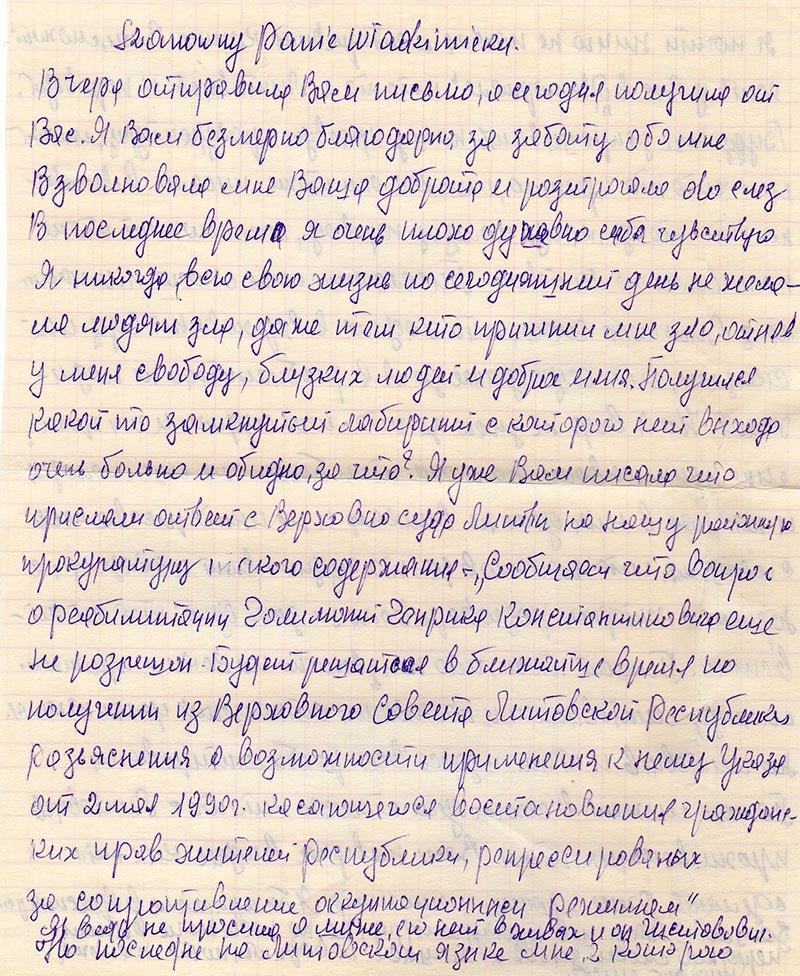 Szanowny Panie Władzimieżu.
Вчера отправила Вам письмо, а сегодня получила от
Вас. Я Вам безмерно благодарна за заботу обо мне
Взволновала мне Ваша доброта и розтрогала до слез
В последнее время я очень плохо духовно себя чувствую
Я никогда всю свою жизнь по сегодняшний день не жела-
ла людям зла, даже тем кто причинил мне зло, отняв
у меня свободу, близких людей и доброе имя. Получился
какой то замкнутый лабиринт с которого нет выхода
очень больно и обидно, за что? Я уже Вам писала что
прислали ответ с Верховно суда Литвы на нашу районную
прокуратуру такого содержания – „Сообщаем что вопрос
о реабилитации Генрика Константиновича еще
не розрешон. Будет решатся в ближайще время по
получении из Верховного Совета Литовской Республики
разьяснения о возможности применения к нему Указа
от 2 мая 1990г. касающегося востановления гражданс-
ких прав жителей Республики, репрессированых
за сопротивление оккупационным режимам"
не просила о муже, его нет в живых и он
на Литовском языке мне, с которого